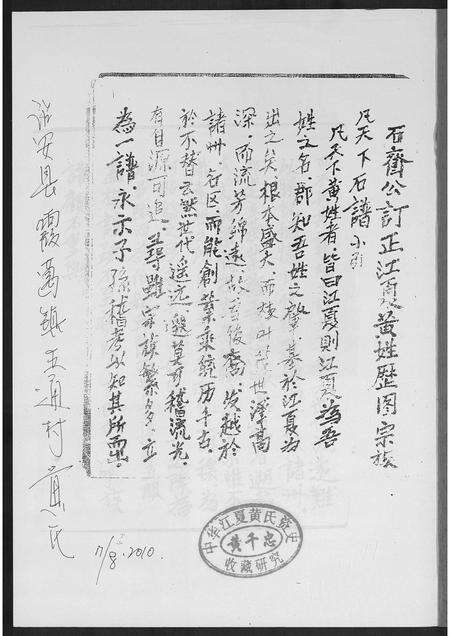 石齋公訂正江夏黄姓歷图宗枝
凡天下石譜小引
凡天下黄姓者皆曰江夏則江夏為吾
姓之名郡知吾姓之啟肇基於江夏為
出之矣根本盛大而枝叶
深而流芳綿遠故吾後裔发越於
諸州各区而能創業乘統历千古
於不替云然世代遥远邈莫可稽流光
有自源可追旦時雖宗族繁多立
為一譜永示子孫稽考以知其所而出
詔安县霞葛鎮五通村黄氏
17/8.2010.
中华江夏黄氏宗史
黄千忠
收藏研究